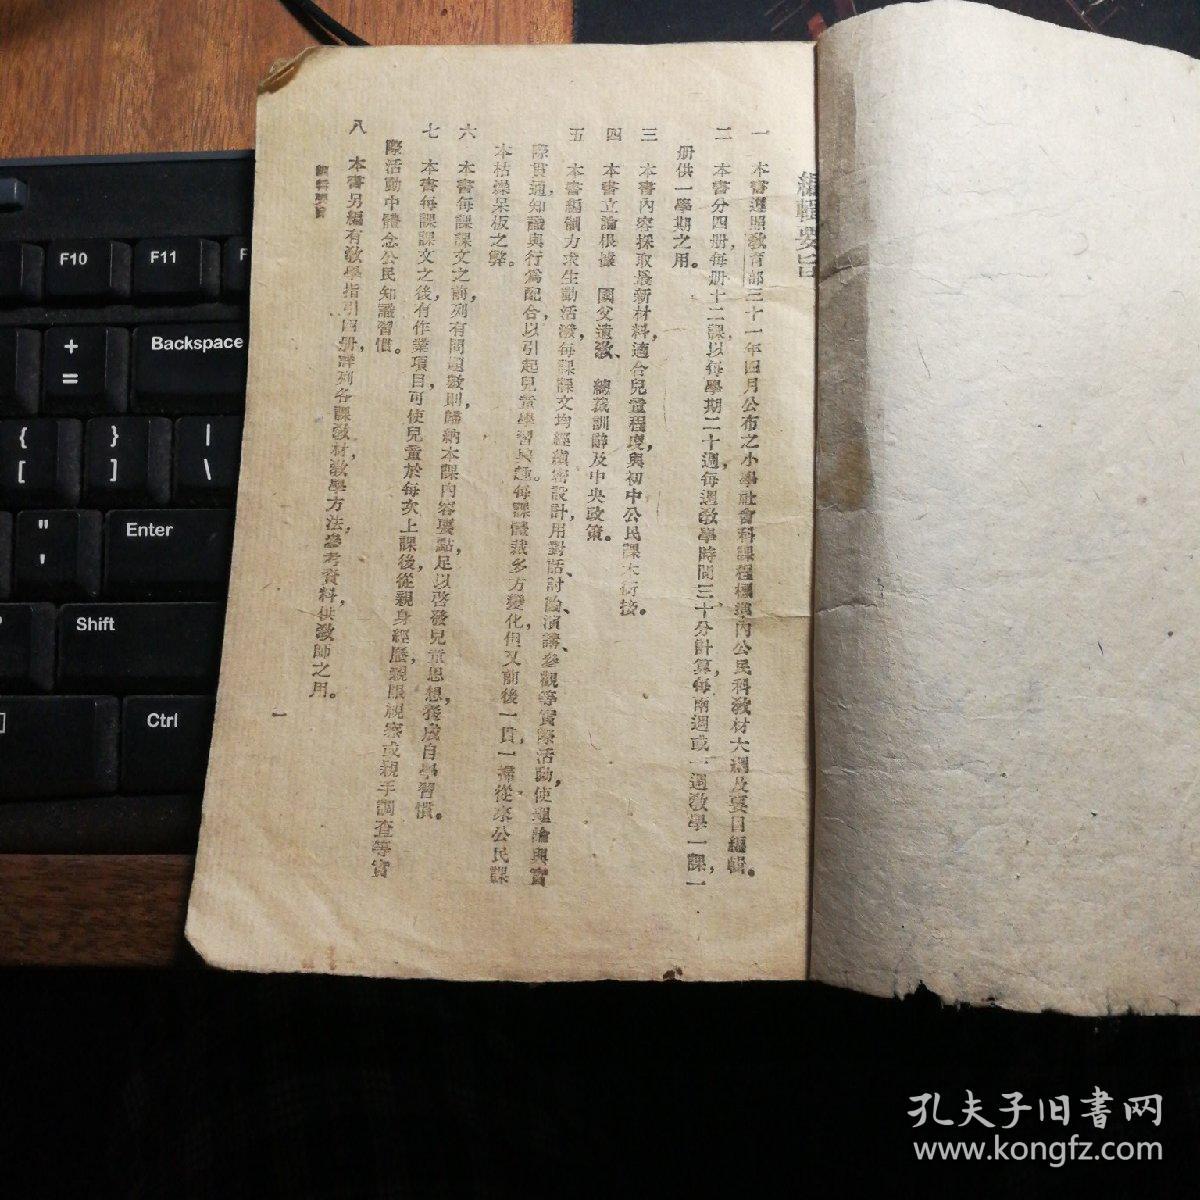 編輯要旨
一 本書遵照教育部三十一年四月公布之小學社會科課程標準內公民科教材大綱及要目編輯。
二 本書分四册，每册十二課，以每學期二十週，每週教學時間三十分計算，每兩週或一週教學一課，一
册供一學期之用。
三 本書內容採取最新材料，適合兒童程度，與初中公民課本銜接。
四 本書立論根據 國父遺教、 總裁訓辭及中央政策。
五 本書編制力求生動活潑，每課課文均經縝密設計，用對話、討論、演講、參觀等實際活動，使理論與實
際貫通，知識與行爲配合，以引起兒童學習興趣。每課體裁多方變化，但又前後一貫，一掃從來公民課
本枯燥呆板之弊。
六 本書每課課文之前，列有問題數則，歸納本課內容要點，足以啓發兒童思想，養成自學習慣。
七 本書每課課文之後有作業項目，可使兒童於每次上課後，從親身經歷，親眼觀察或親手調查等實
際活動中體念公民知識習慣。
八 本書另編有教學指引四册，詳列各課教材，教學方法，參考資料，供教師之用。
編輯要旨
一
F10
F11
F
+
=
Backspace
{
[
}
]
|
\
"
'
Enter
Shift
Ctrl
孔夫子旧書网
www.kongfz.com